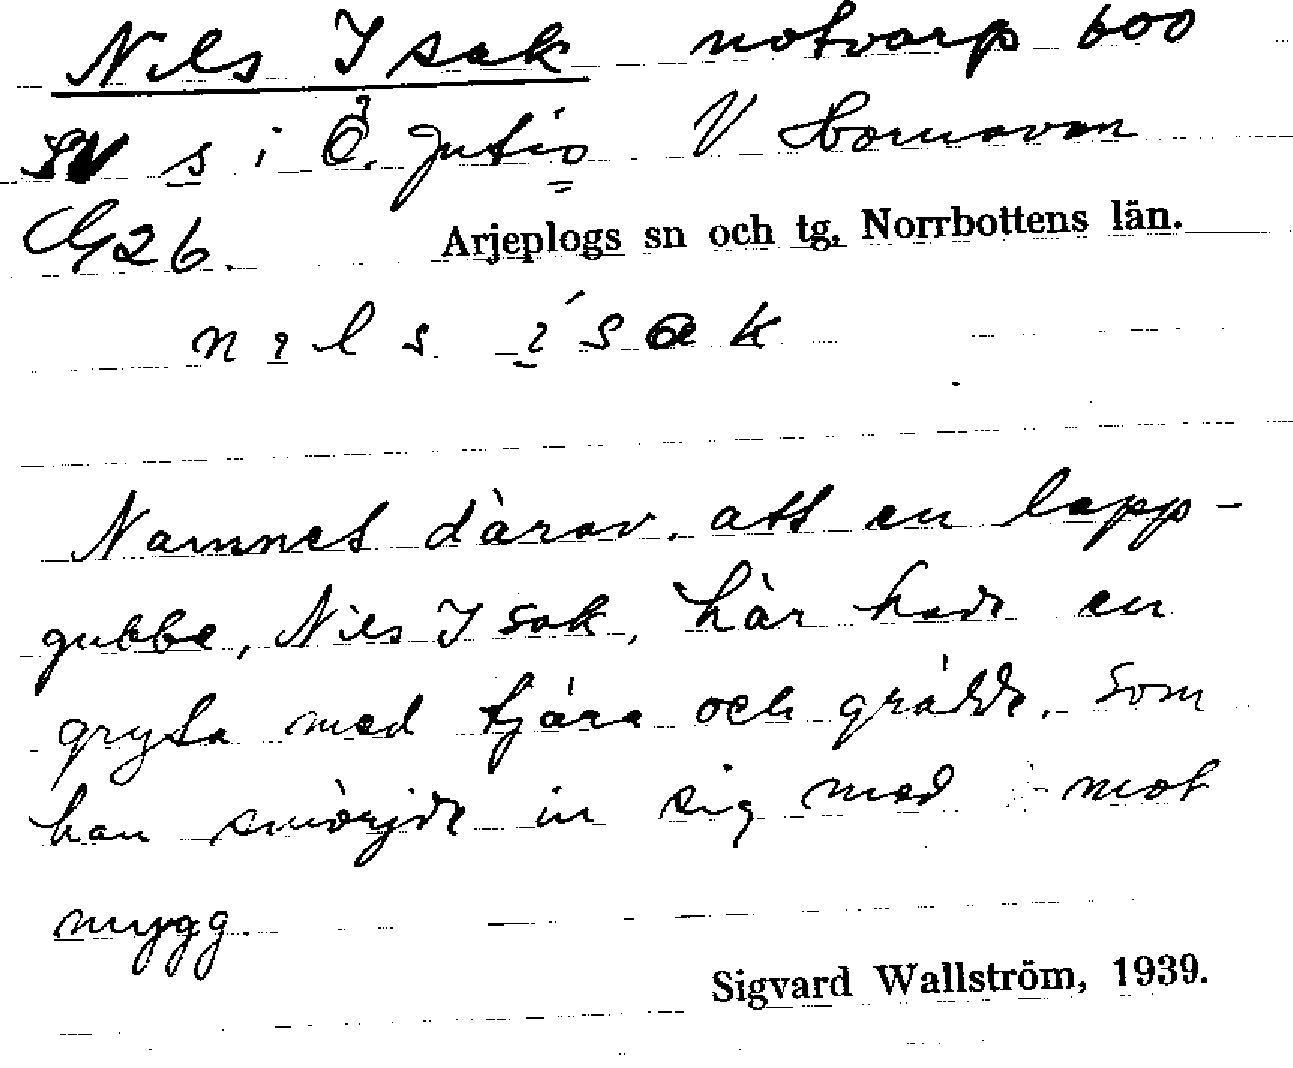 Nils Isak notvarp 600
SV s i Ö. Jutis V Hornavan
G26.
Arjeplogs sn och tg, Norrbottens län.
nils ísak
Namnet därav, att en lapp-
gubbe, Nils Isak, här hade en
gryta med tjära och grädde, som
han smörjde in sig med mot
mygg.
Sigvard Wallström, 1939.